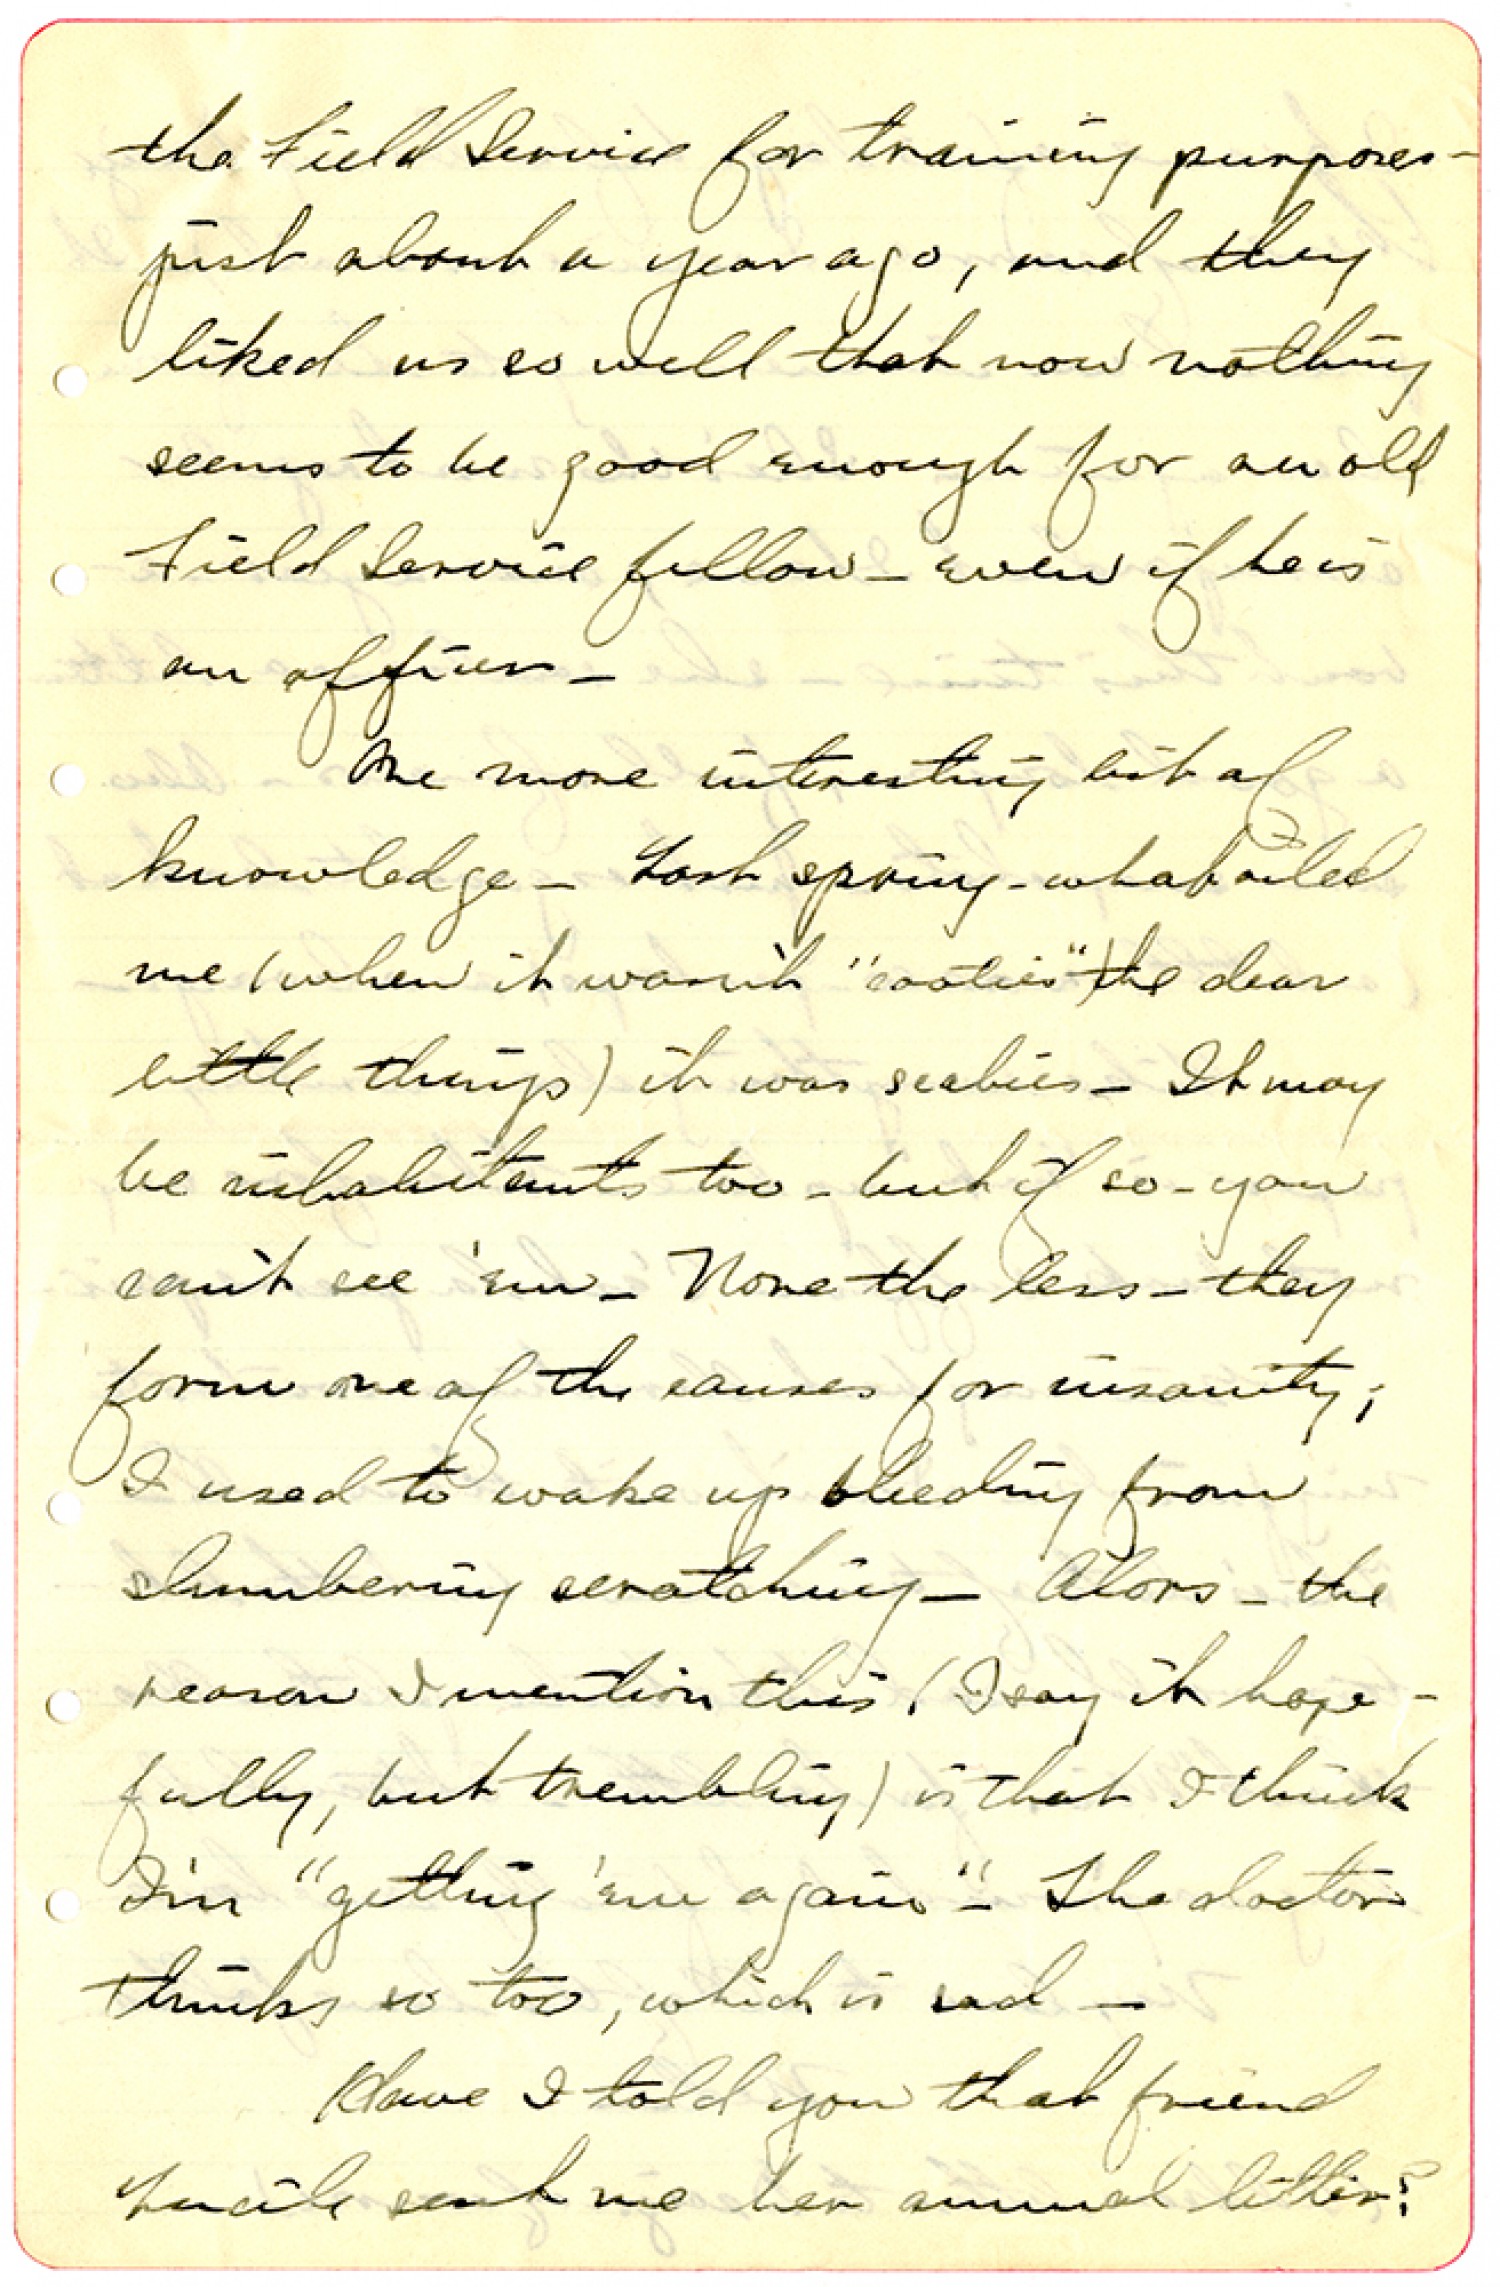 the Field Service for training purposes -
just about a year ago, and they
liked us so well that now nothing
seems to be good enough for an old
Field Service fellow - even if he is
an officer -
One more interesting bit of
knowledge - Last spring - what ailed
me (when it wasn't "cooties") the dear
little things) it was scabies - It may
be inhabitants too - but if so - you
can't see 'em - None the less - they
form one of the causes for insanity;
I used to wake up bleeding from
slumbering scratching - Alors - the
reason I mention this (I say it hope-
fully, but trembling) is that I think
I'm "getting 'em again" - The doctor
thinks so too, which is sad -
Have I told you that friend
Lucile sent me her annual letter?